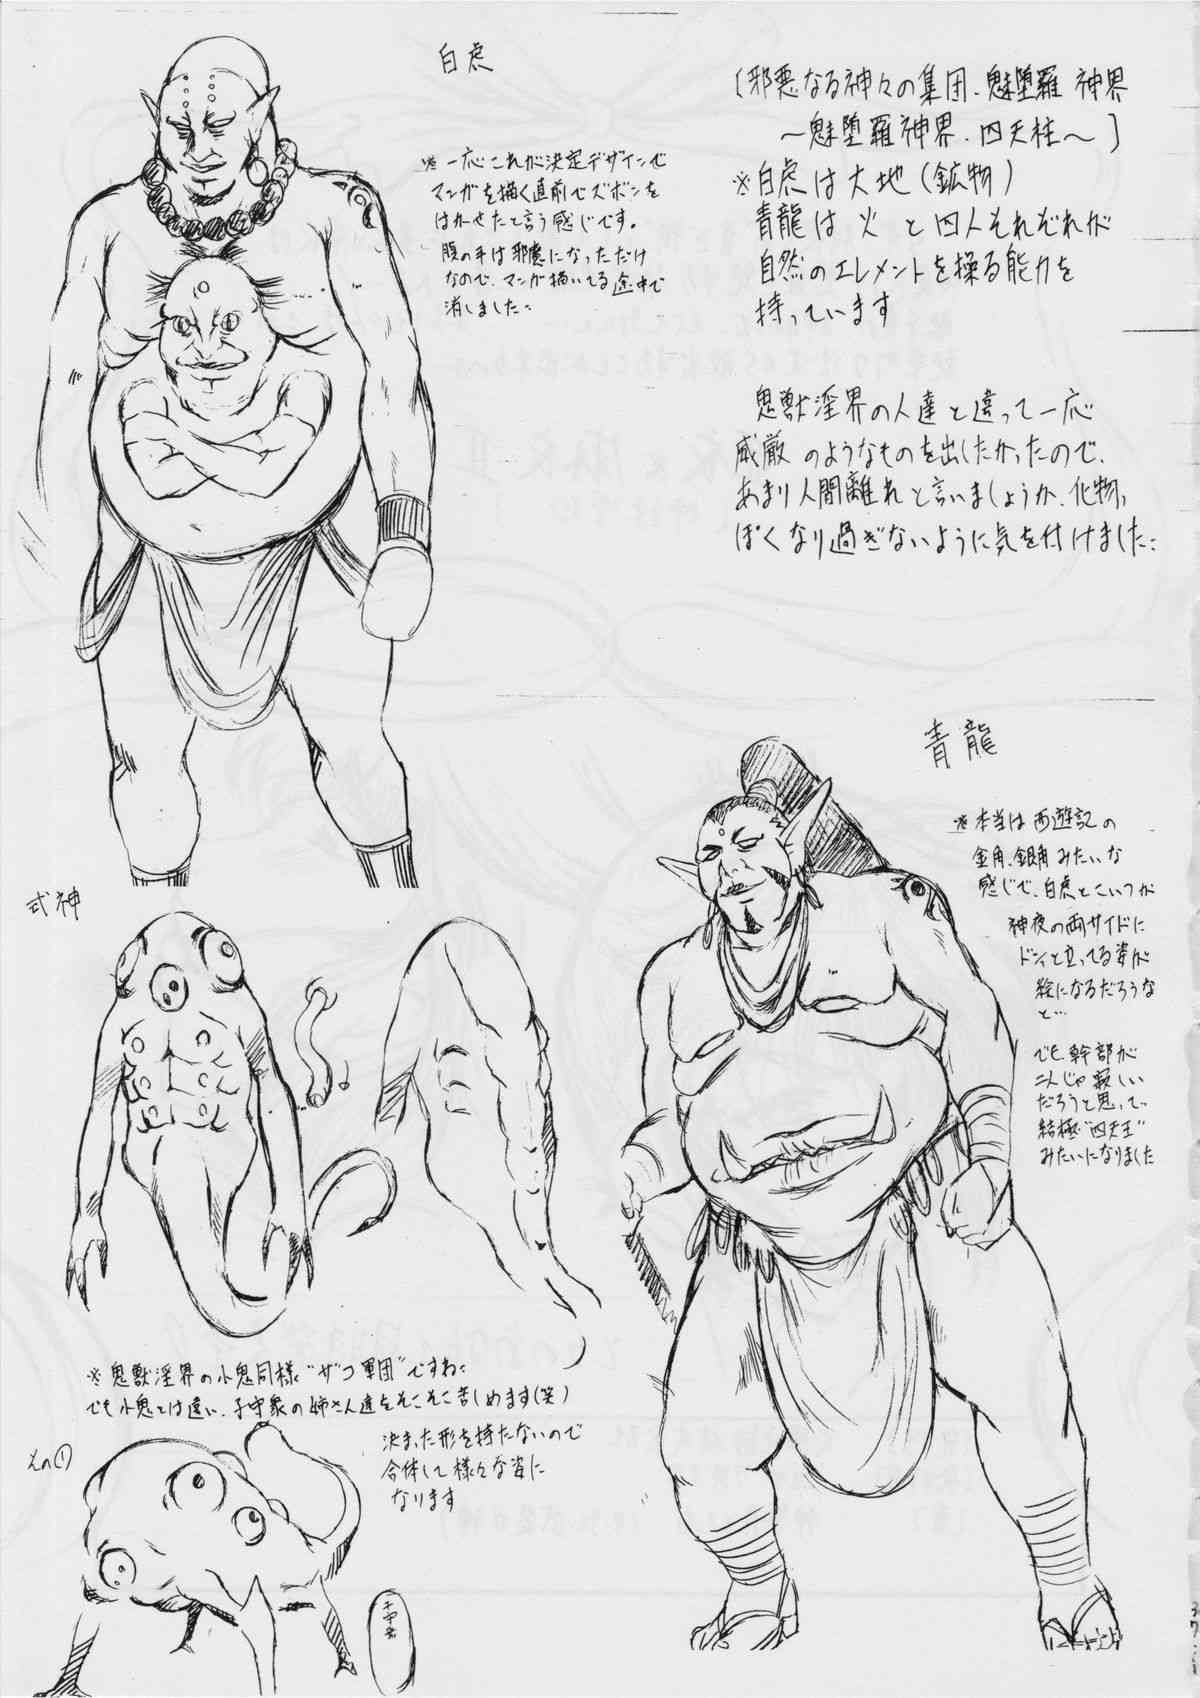 白虎
※一応これが決定デザインで
マンガを描く直前でズボンを
はかせたと言う感じです。
腹の手は邪悪になっただけ
なので、マンガ描いてる途中で
消しました…
[邪悪なる神々の集団、魅堕羅 神界
～魅堕羅神界、四天柱～]
※白虎は大地(鉱物)
青龍は火と四人それぞれが
自然のエレメントを操る能力を
持っています
鬼獣淫界の人達と違って一応
威厳のようなものを出したかったので、
あまり人間離れと言いましょうか、化物っ
ぽくなり過ぎないように気を付けました…
青龍
※本当は西遊記の
金角、銀角みたいな
感じで、白虎とこいつが
神夜の両サイドに
ドンと立ってる姿が
絵になるだろうな
と…
でも幹部が
二人じゃ寂しい
だろうと思って、
結極"四天王"
みたいになりました
式神
※鬼獣淫界の小鬼同様"ザコ軍団"ですね…
でも小鬼とは違い、子守衆の姉さん達をそこそこ苦しめます(笑)
決まった形を持たないので
合体して様々な姿に
なります
その①
子守衆
37